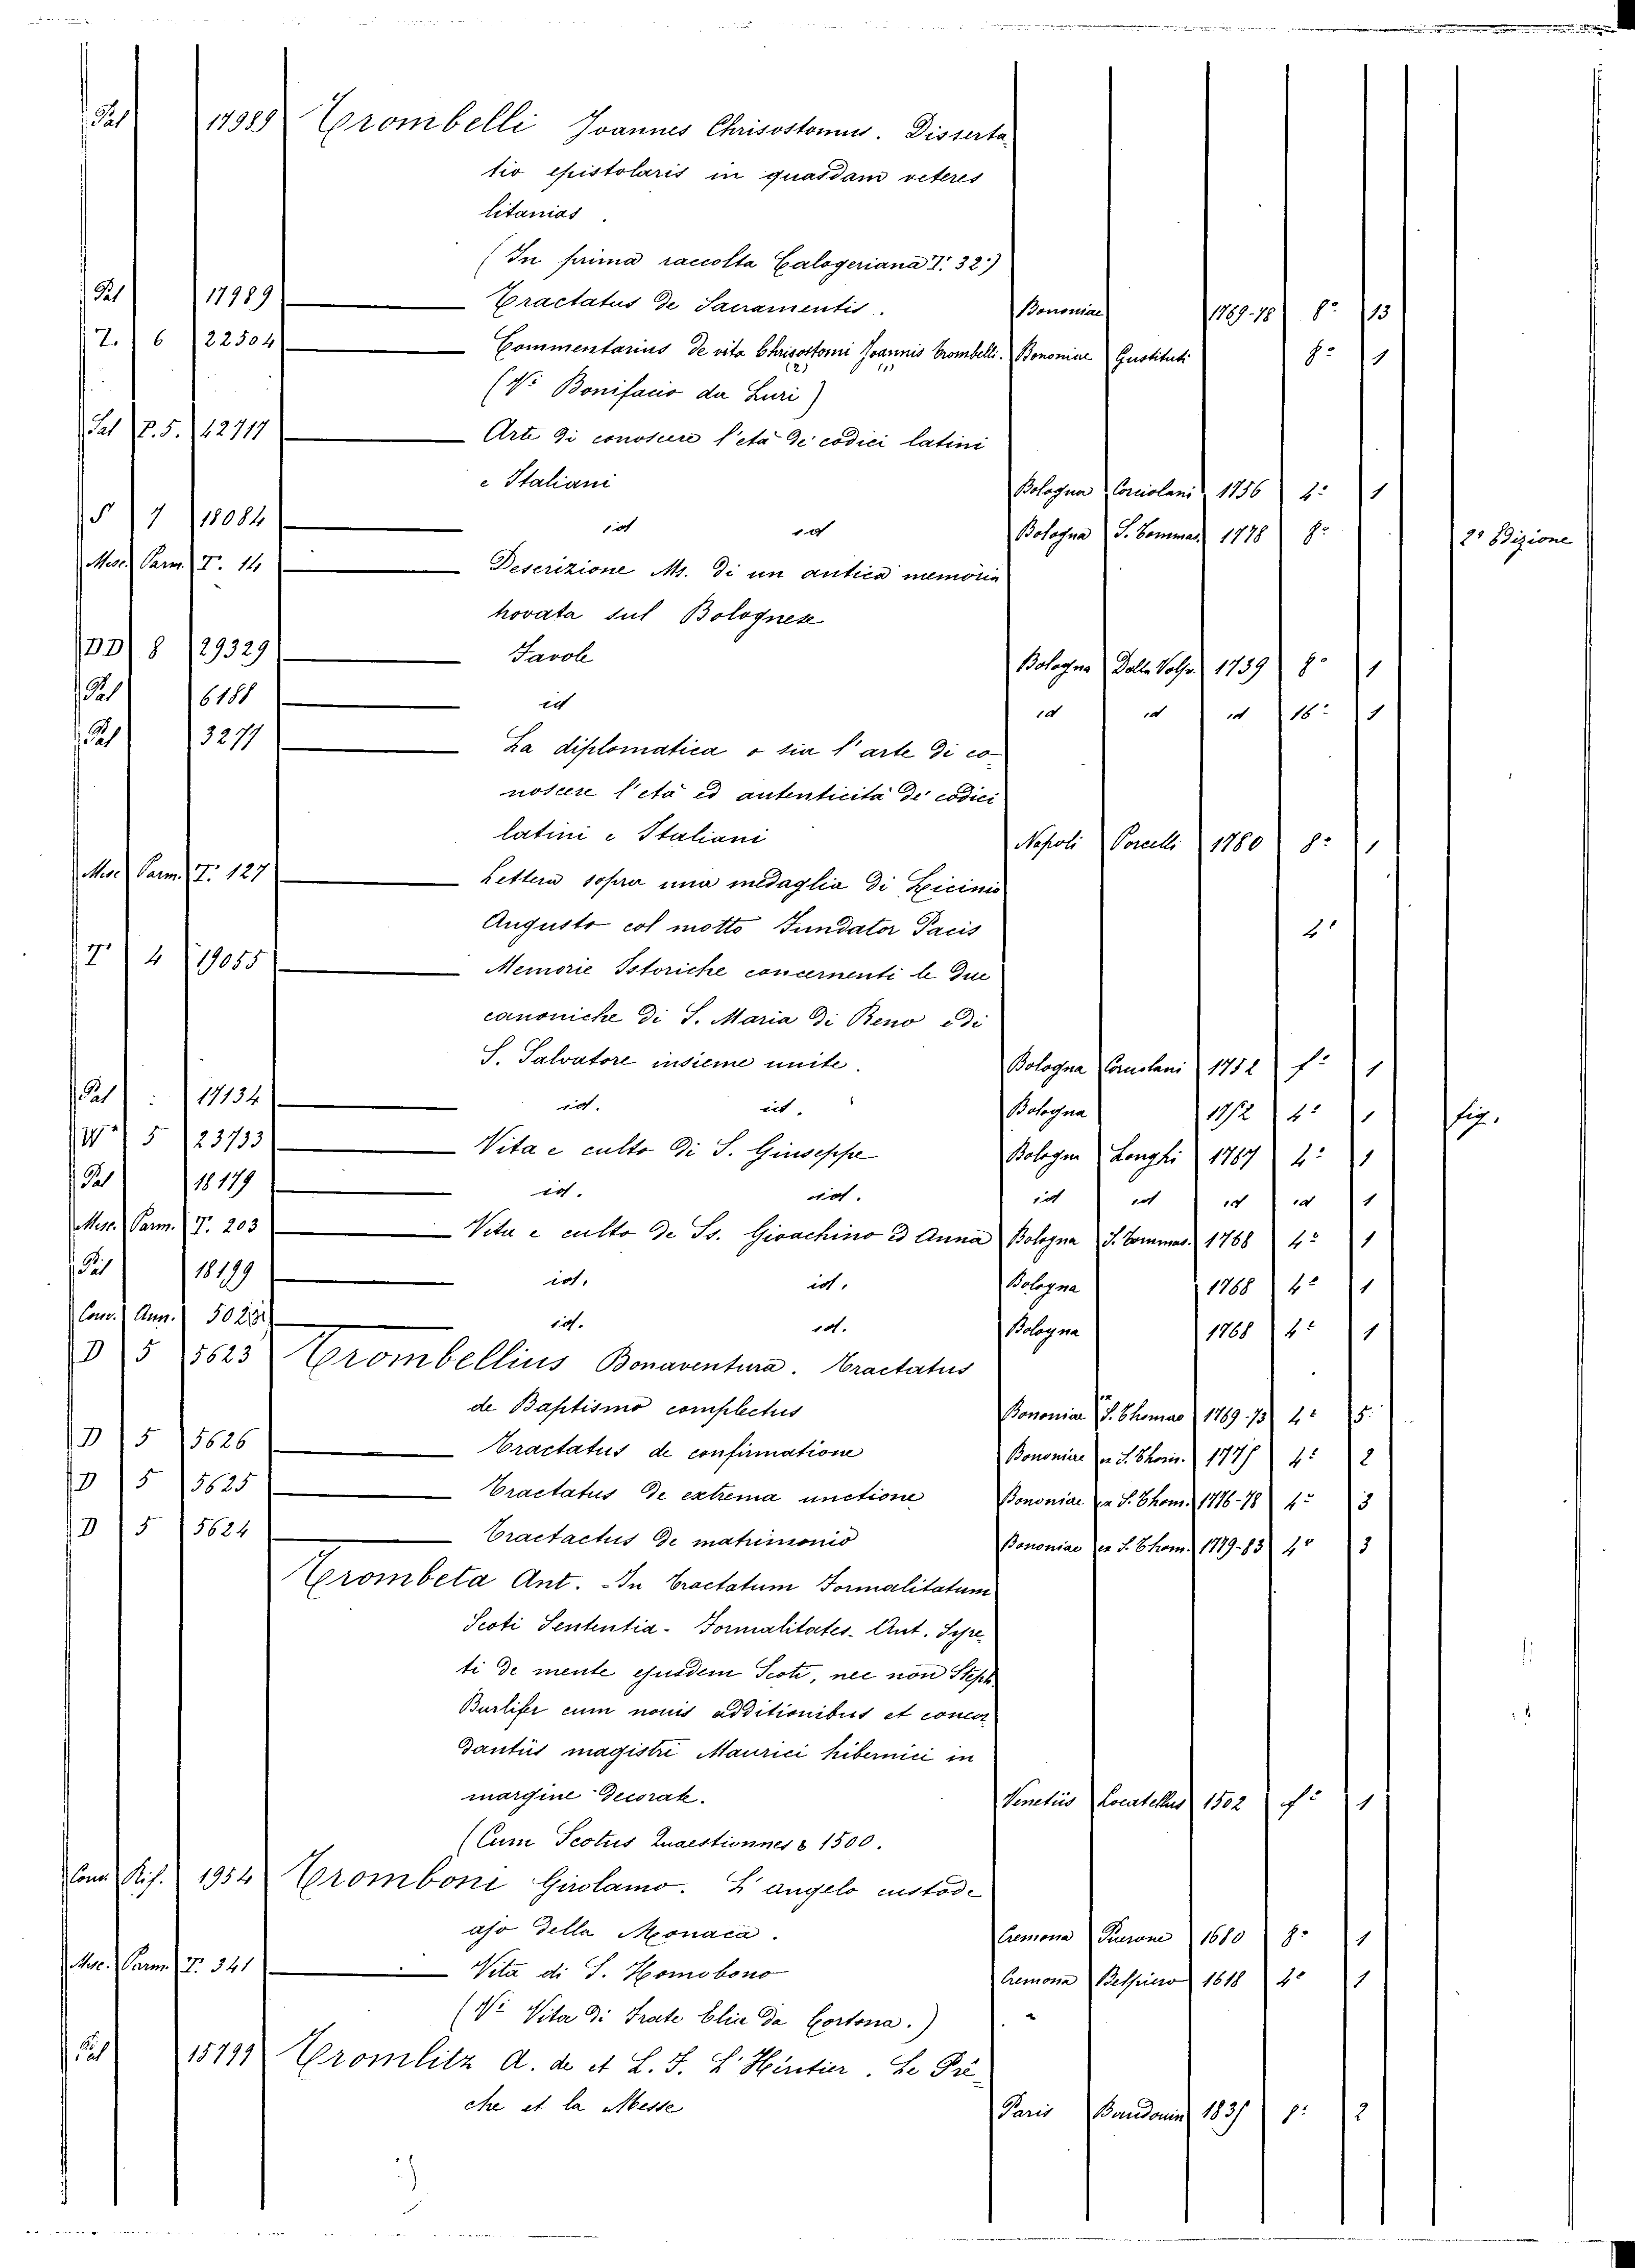 Pal 17989 Trombelli Joannes Chrisostomus. Disserta-
tio epistolaris in quasdam veteres
litanias.
(In prima raccolta Calogeriana T. 32.)
Pal 17989 — Tractatus de Sacramentis. Bononiae 1769-78 8° 13
Z. 6 22504 — Commentarius de vita Chrisostomi Joannis Trombelli. Bononiae Gustituti 8° 1
(2) (1)
(V. Bonifacio da Luri)
Pal P.5. 42717 — Arte di conoscere l'età de codici latini
e Italiani Bologna Corciolani 1756 4° 1
S 7 18084 — id id Bologna S. Tommas 1778 8° 2° Edizione
Misc. Parm. T. 14 — Descrizione Ms. di un antica memoria
trovata sul Bolognese
DD 8 29329 — Favole Bologna Dalla Volpe 1739 8° 1
Pal 6188 — id id id id 16° 1
Pal 3277 — La diplomatica o sia l'arte di co-
noscere l'età ed autenticità de codici
latini e Italiani Napoli Porcelli 1780 8° 1
Misc. Parm. T. 127 — Lettera sopra una medaglia di Licinio
Augusto col motto Fundator Pacis 4°
T 4 19055 — Memorie Istoriche concernenti le due
canoniche di S. Maria di Reno e di
S. Salvatore insieme unite. Bologna Corciolani 1752 f° 1
Pal : 17134 — id. id. Bologna 1752 4° 1 fig.
W 5 23733 — Vita e culto di S. Giuseppe Bologna Longhi 1767 4° 1
Pal 18179 — id. id. id id id id 1
Misc. Parm. T. 203 — Vita e culto de Ss. Gioachino ed Anna Bologna S. Tommas. 1768 4° 1
Pal 18199 — id. id. Bologna 1768 4° 1
Conv. Ann. — id. id. Bologna 1768 4° 1
D 5 5623 Trombellius Bonaventura. Tractatus
de Baptismo complectus Bononiae S. Thomae 1769-73 4° 5.
D 5 5626 — Tractatus de confirmatione Bononiae ex S. Thom. 4° 2
D 5 5625 — Tractatus de extrema unctione Bononiae ex S. Thom. 1776-78 4° 3
D 5 5624 — Tractactus de matrimonio Bononiae ex S. Thom. 1779-83 4° 3
Trombeta Ant. - In Tractatum Formalitatum
Scoti Sententia - Formalitates - Ant. Syre-
ti de mente ejusdem Scoti, nec non Steph.
Burlifer cum nonis additionibus et concor
dantiis magistri Maurici hibernici in
margine decorate. Venetiis Locatellus 1502 f° 1
(Cum Scotus Quaestionnes 1500.
Conv. Rif. 1954 Tromboni Girolamo. L'angelo custode
ajo della Monaca. Cremona 1680 8° 1
Misc. Parm. T. 341 — Vita di S. Homobono Cremona Belpiero 1618 4° 1
(V. Vita di Frate Elia da Cortona.)
Pal 15799 Tromlitz A. de et L. F. L'Héritier. Le Prê-
che et la Messe Paris Baudouin 8° 2